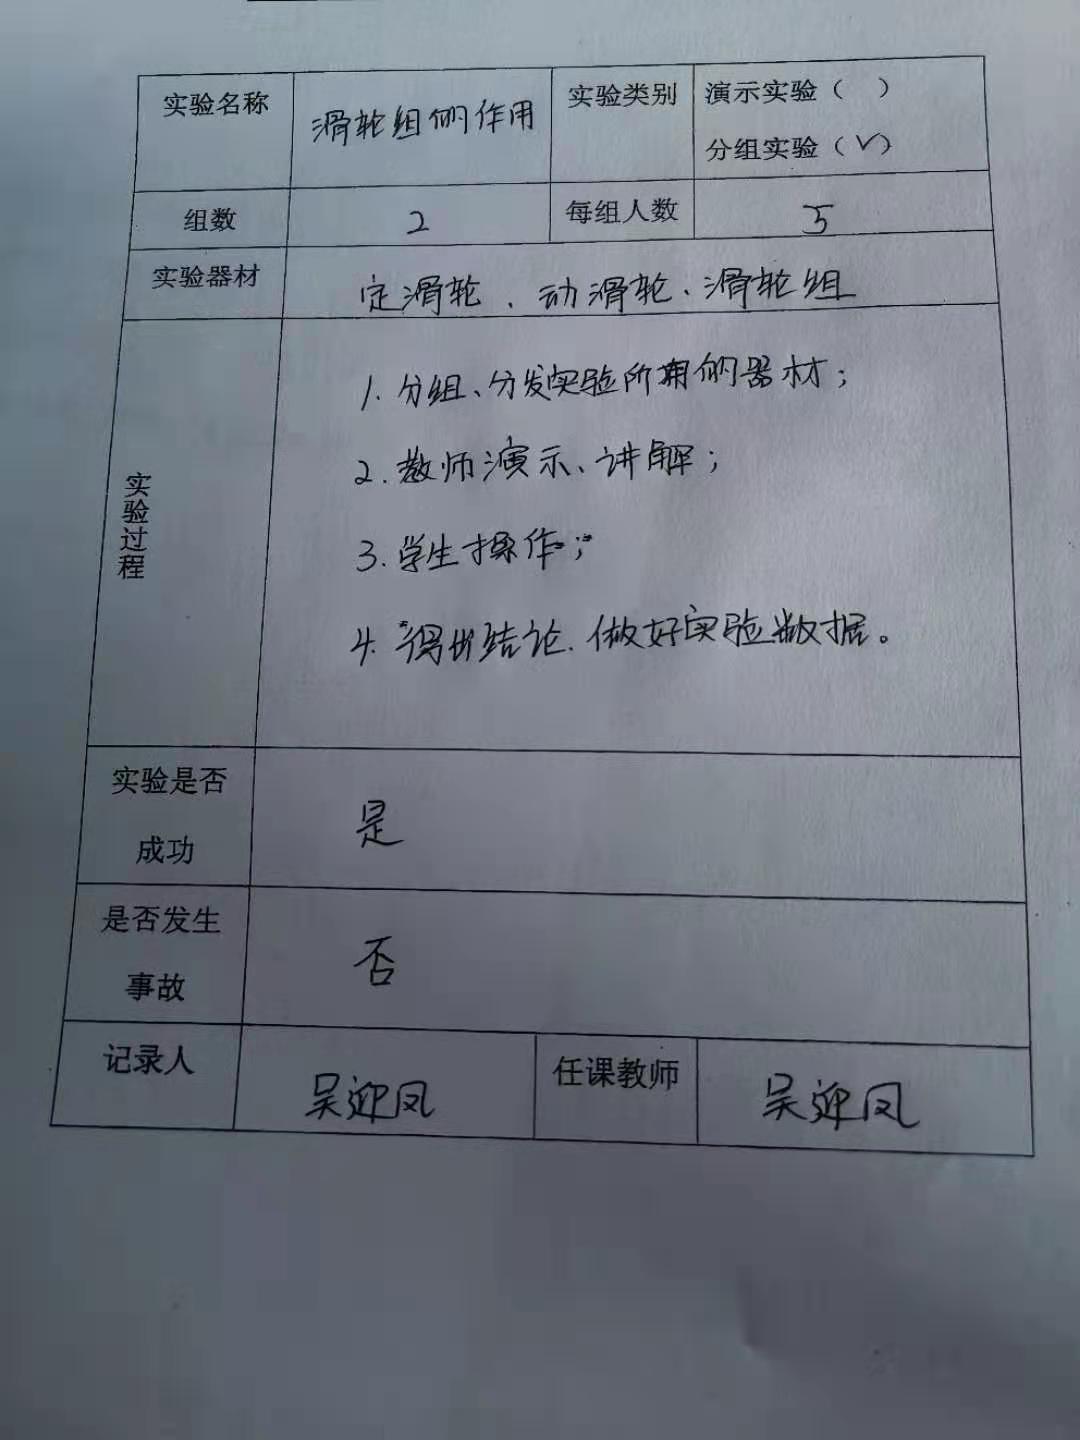 实验名称 滑轮组的作用 实验类别 演示实验（ ）
分组实验（√）
组数 2 每组人数 5
实验器材 定滑轮、动滑轮、滑轮组
实验过程
1. 分组、分发实验所用的器材；
2. 教师演示、讲解；
3. 学生操作；
4. 得出结论.做好实验数据。
实验是否
成功
是
是否发生
事故
否
记录人 吴迎凤 任课教师 吴迎凤